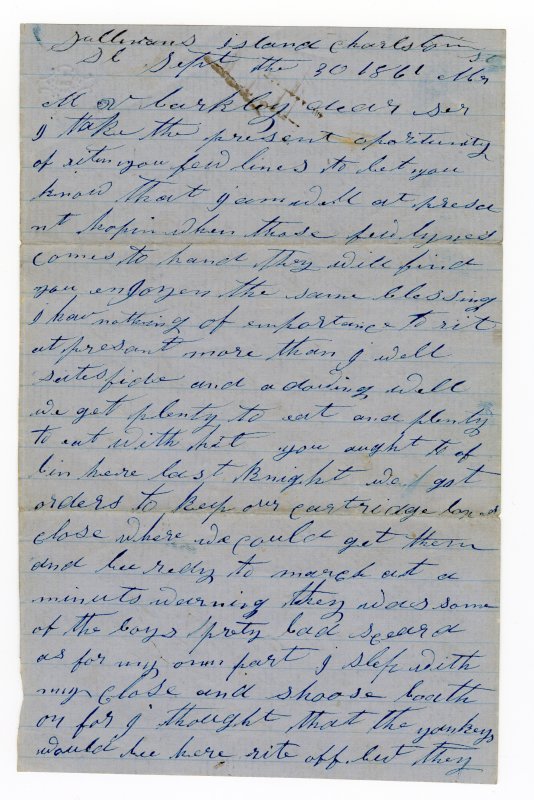 Sullivans island Charlston
SC Sept the 30 1861 Mr
M V barkley dear ser
I take the present oportunity
of riten you few lines to let you
know that I am well at presa
nt hopin when those few lynes
comes to hand they will find
you enJoyen the same blessing
I hav nothing of emportance to rit
at presant more than I well
satesfide and a dowing well
we get plenty to eat and plenty
to eat with hit you aught to of
bin here last Knight we got
orders to keep our cartridge boxes
close where we could get them
and be redy to march at a
minuts warning they was some
of the boys prety bad sceard
as for my own part I slep with
my close and shoose boath
on for I thought that the yankeys
would be here rite off but they